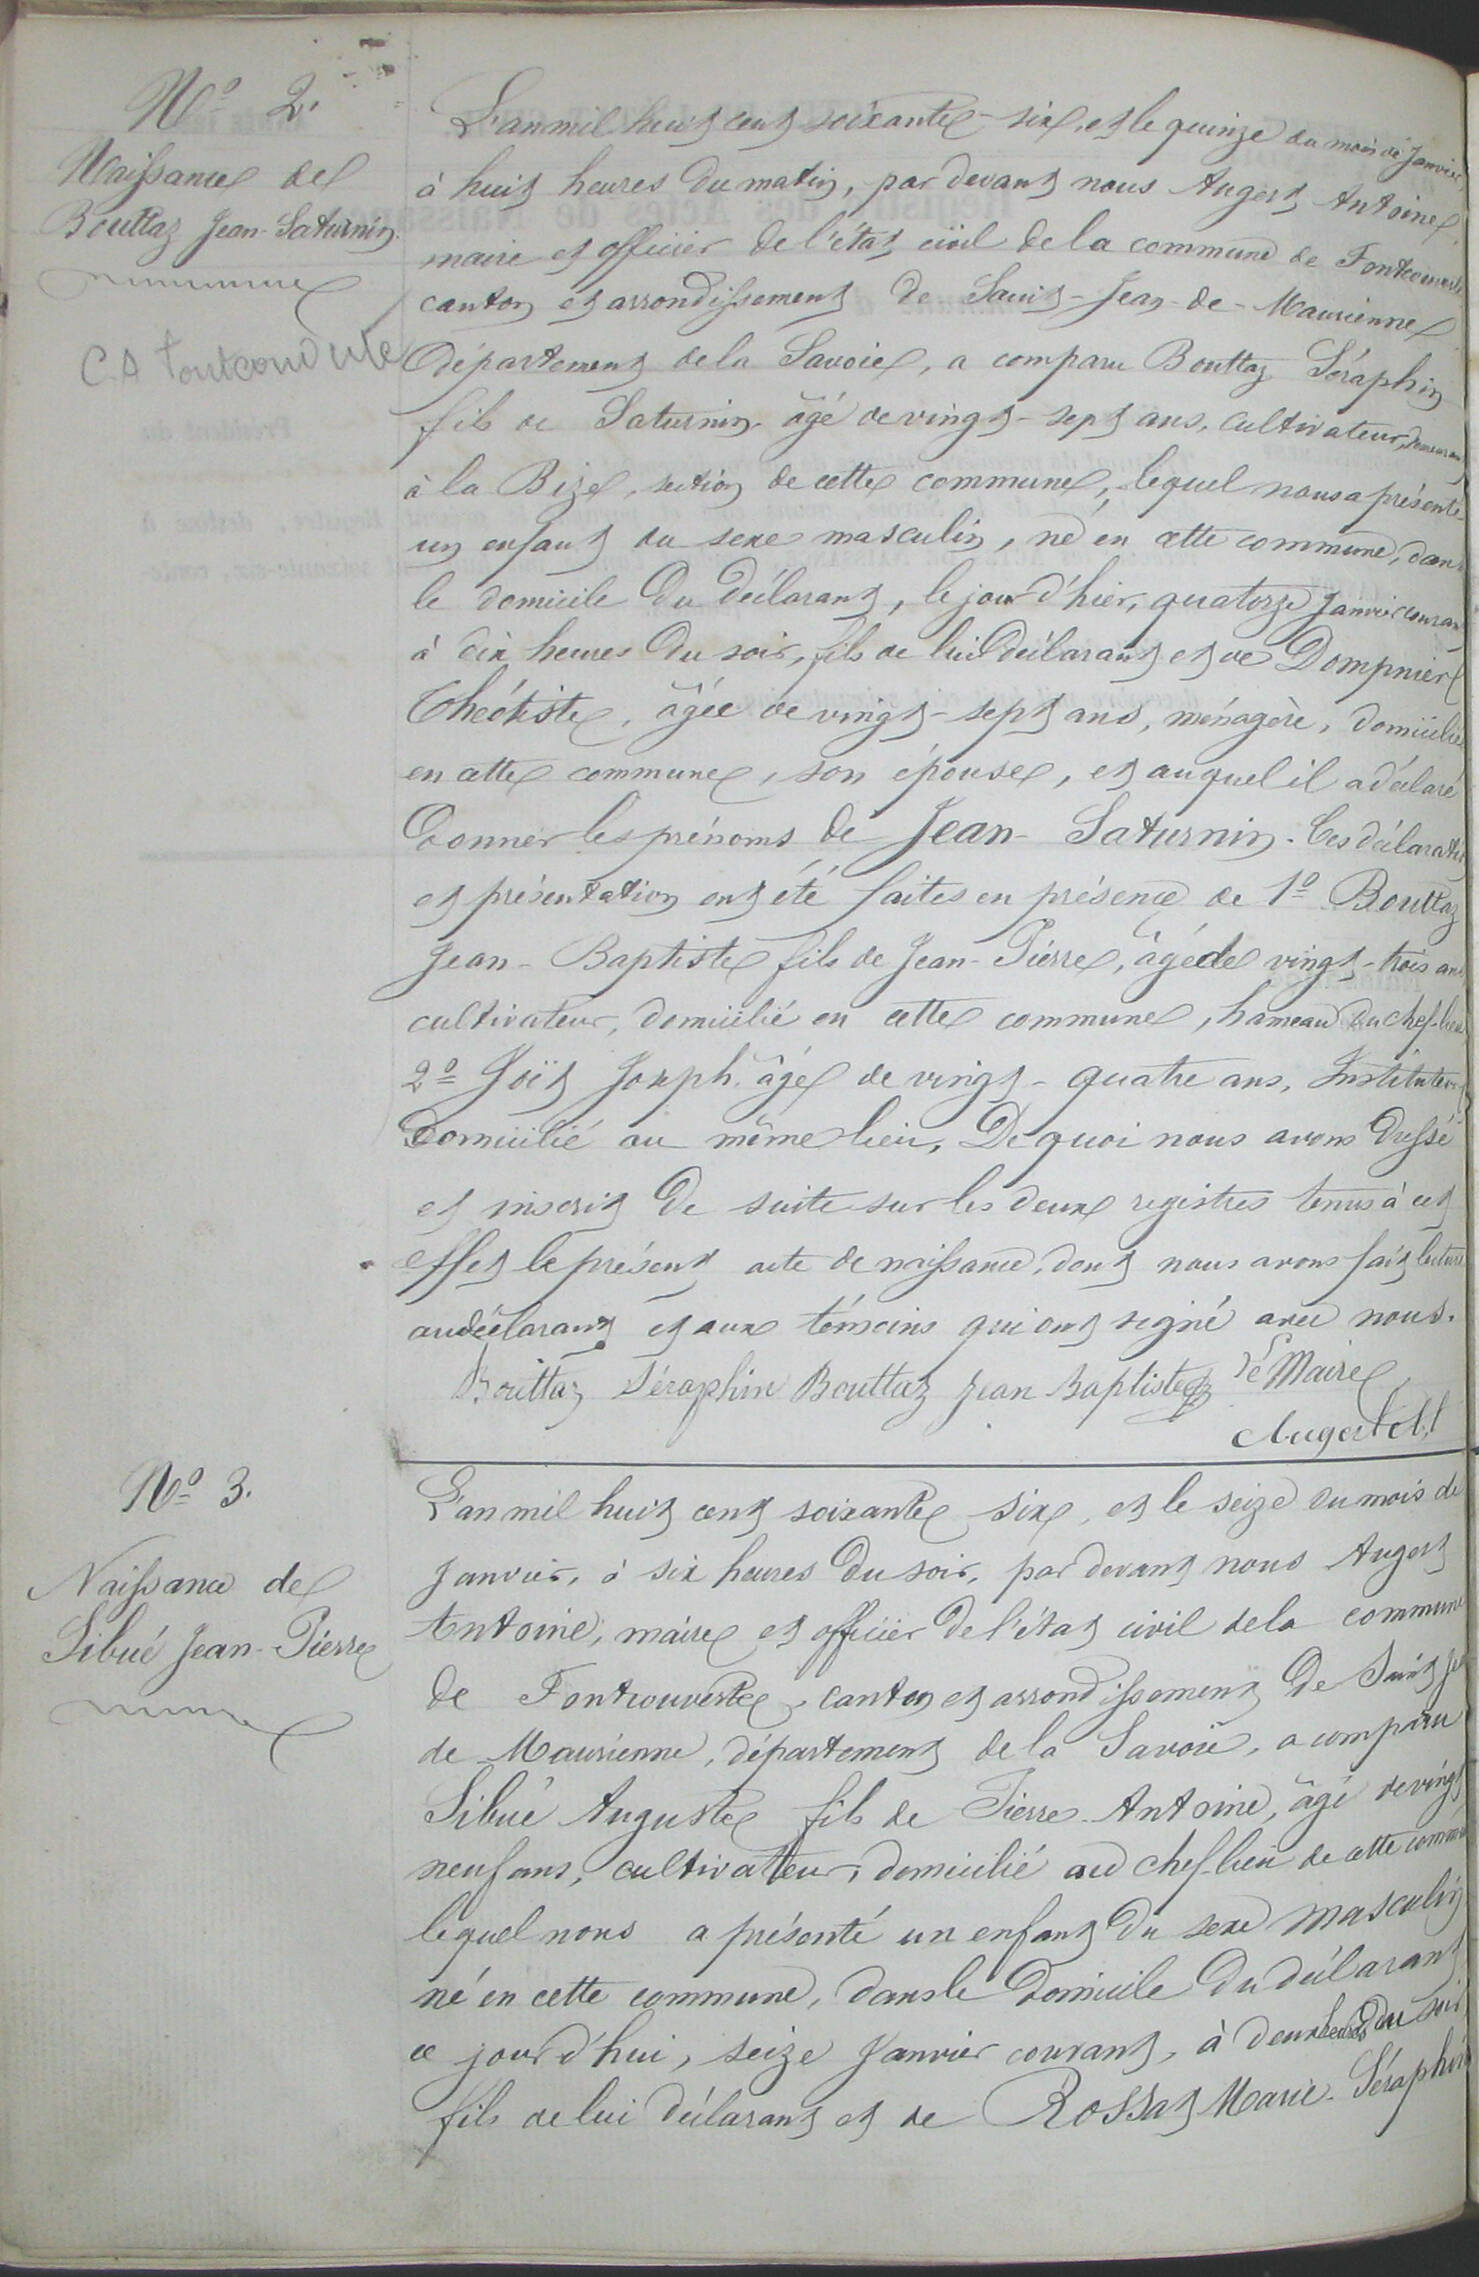 Nº 2.
Naissance de
Bouttaz Jean-Saturnin.
L'an mil huit cent soixante-six, et le quinze du mois de Janvier
à huit heures du matin, par devant nous Augert Antoine
maire et officier de l'état civil de la commune de Fontcouverte
canton et arrondissement de Saint-Jean-de-Maurienne
département de la Savoie, a comparu Bouttaz Séraphin
fils de Saturnin âgé de vingt-sept ans, cultivateur, demeurant
à la Bize, section de cette commune, lequel nous a présenté
un enfant du sexe masculin, né en cette commune, dans
le domicile du déclarant, le jour d'hier, quatorze Janvier courant
à dix heures du soir, fils de lui déclarant et de Dompnier
Théotiste, âgée de vingt-sept ans, ménagère, domiciliée
en cette commune, son épouse, et auquel il a déclaré
donner les prénoms de Jean-Saturnin. Ces déclaration
et présentation ont été faites en présence de 1º Bouttaz
Jean-Baptiste fils de Jean-Pierre, âgé de vingt-trois ans
cultivateur, domicilié en cette commune, hameau du chef-lieu
2º Joseph âgé de vingt-quatre ans, Instituteur
domicilié au même lieu, De quoi nous avons dressé
et inscrit de suite sur les deux registres tenus à cet
effet le présent acte de naissance, dont nous avons fait lecture
au déclarant et aux témoins qui ont signé avec nous.
Bouttaz Séraphin Bouttaz Jean Baptiste Le Maire
Augert
Nº 3.
Naissance de
Sibué Jean-Pierre
L'an mil huit cent soixante six, et le seize du mois de
Janvier, à six heures du soir, par devant nous Augert
Antoine, maire et officier de l'état civil de la commune
de Fontcouverte, canton et arrondissement de Saint Jean
de Maurienne, département de la Savoie, a comparu
Sibué Auguste fils de Pierre-Antoine, âgé de vingt
neuf ans, cultivateur, domicilié au chef-lieu de cette commune
lequel nous a présenté un enfant du sexe masculin
né en cette commune, dans le domicile du déclarant
ce jour d'hui, seize Janvier courant, à deux heures du soir
fils de lui déclarant et de Rossat Marie-Séraphine